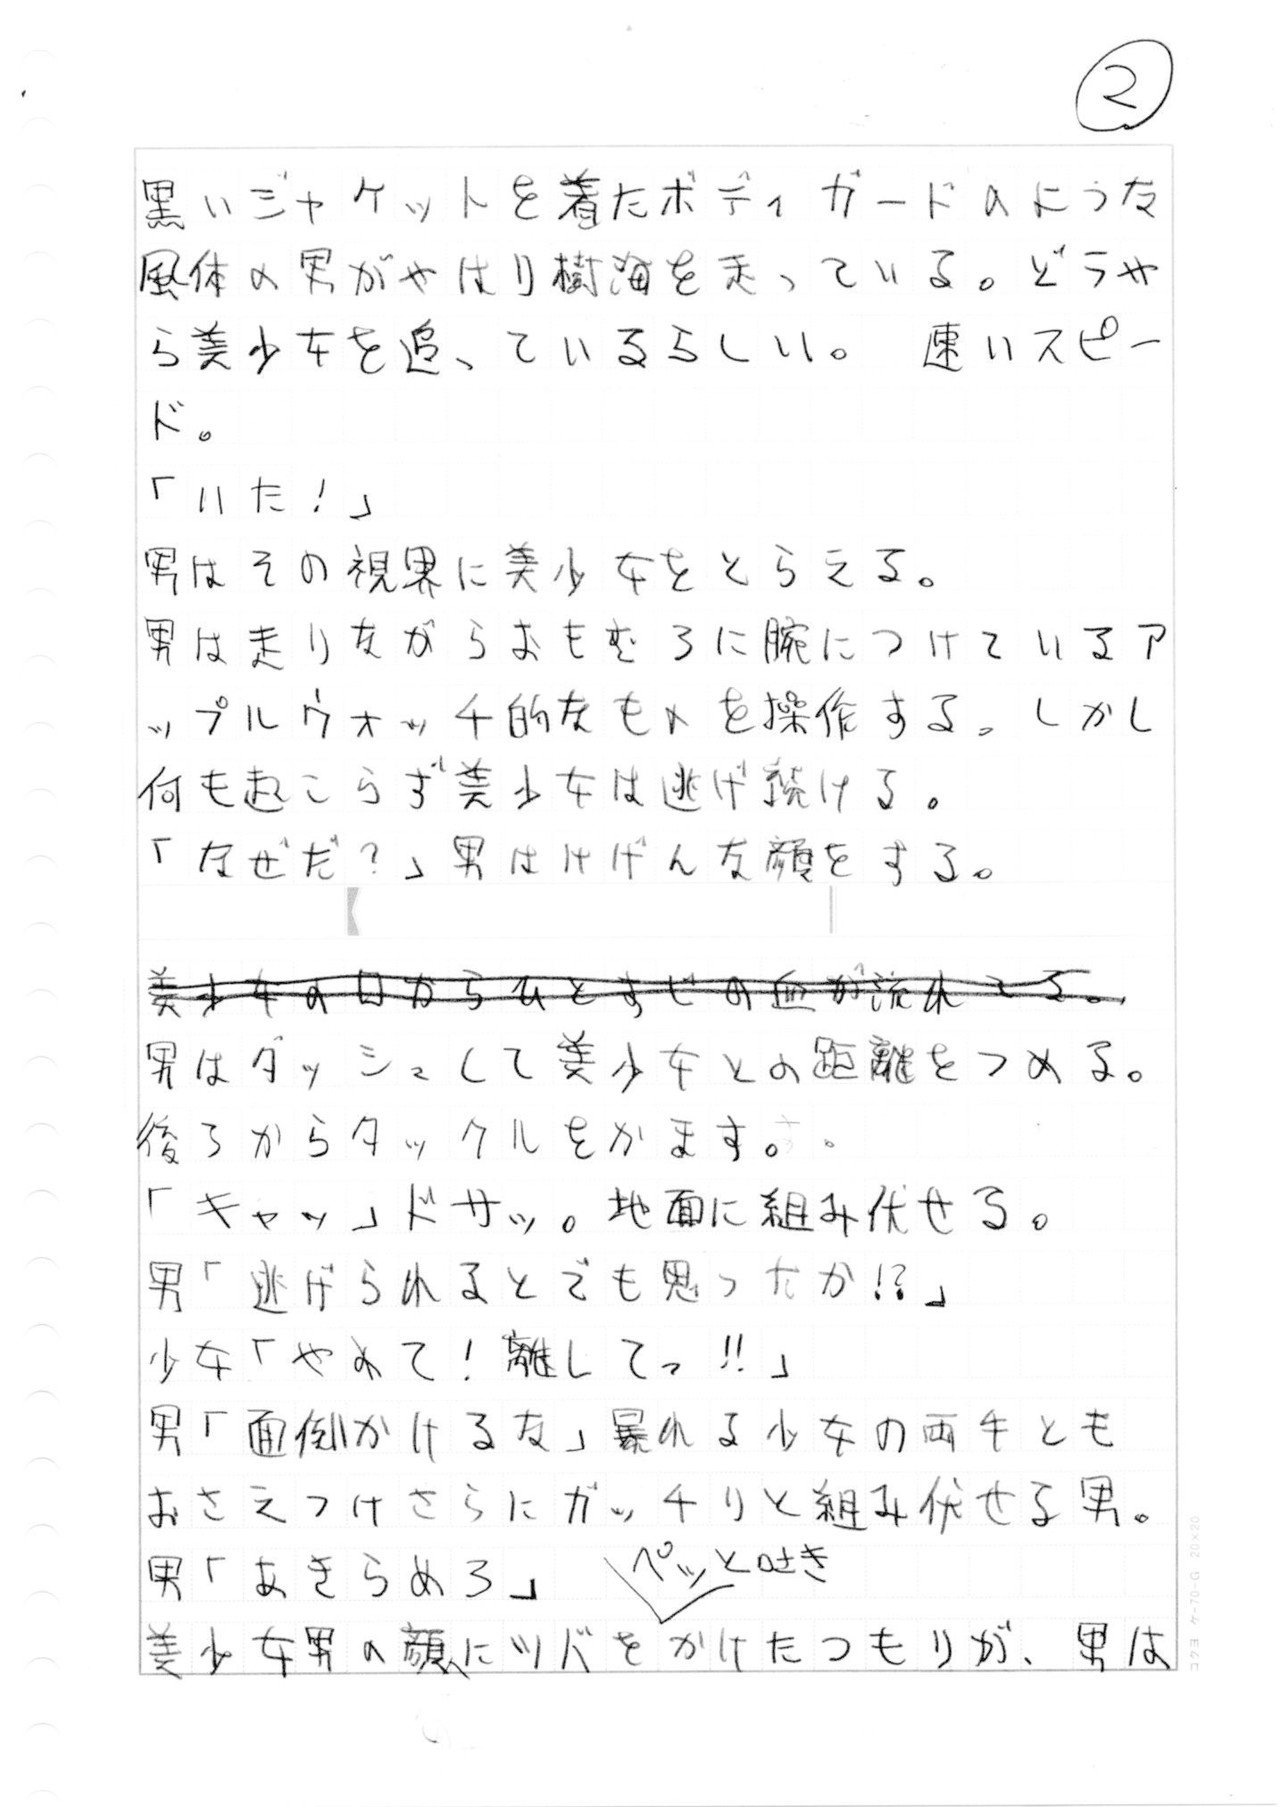 2
黒いジャケットを着たボディガードのような
風体の男がやはり樹海を走っている。どうや
ら美少女を追っているらしい。　速いスピー
ド。
「いた！」
男はその視界に美少女をとらえる。
男は走りながらおもむろに腕につけているア
ップルウォッチ的なものを操作する。しかし
何も起こらず美少女は逃げ続ける。
「なぜだ？」男はけげんな顔をする。
美少女の口からひとすじの血が流れてる。
男はダッシュして美少女との距離をつめる。
後ろからタックルをかます。
「キャッ」ドサッ。地面に組み伏せる。
男「逃げられるとでも思ったか!?」
少女「やめて！離してっ!!」
男「面倒かけるな」暴れる少女の両手とも
おさえつけさらにガッチリと組み伏せる男。
男「あきらめろ」
ペッと吐き
美少女男の顔にツバをかけたつもりが、男は
コクヨ ケ-70-G 20×20